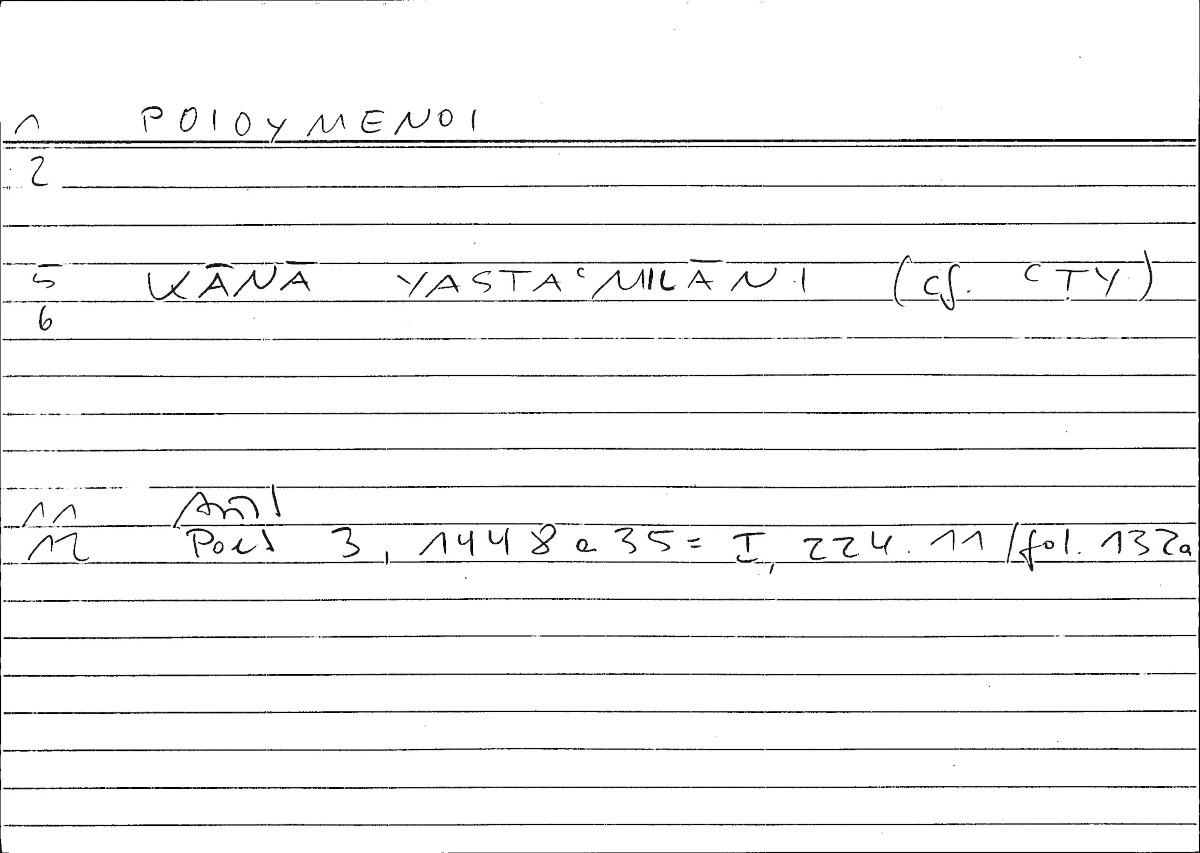 1 POIOYMENOI
2
5 KĀNĀ YASTAʿMILĀNI (cf. CTY)
6
11 Arist
12 Poet 3, 1448 a 35 = I, 224.11 / fol. 132a